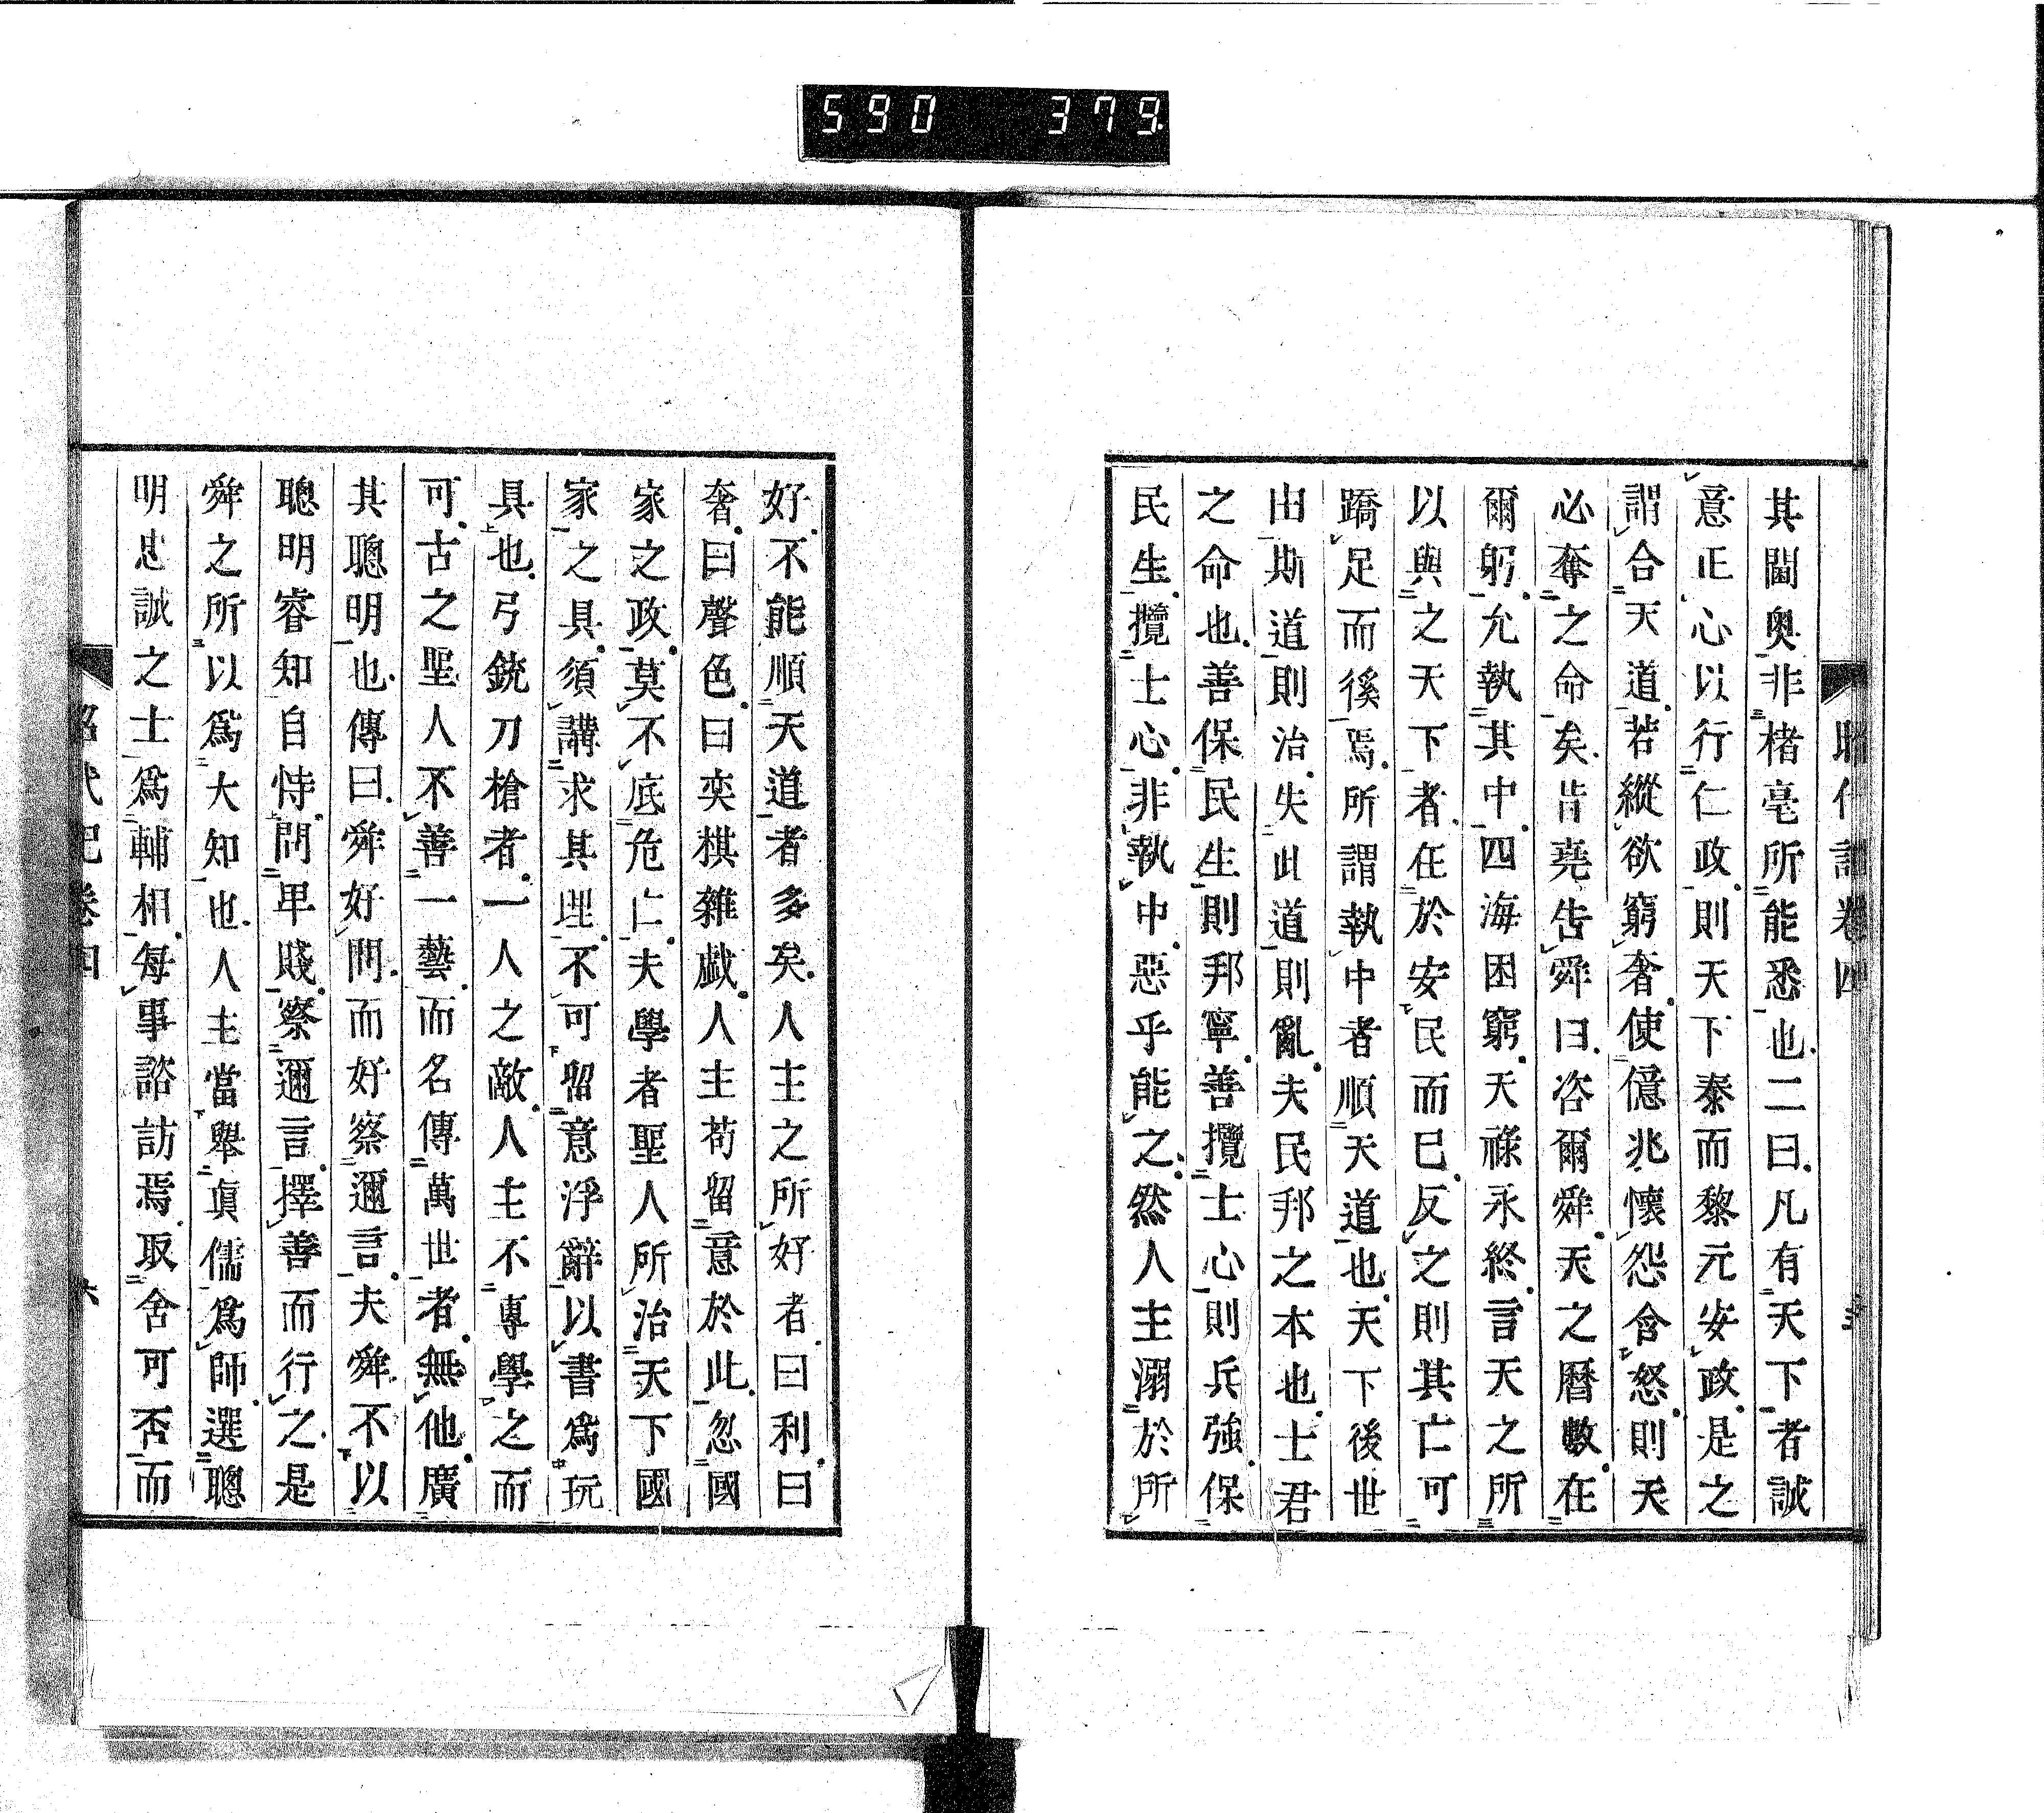 590 379
昭代記卷四
其閫奧非楮毫所能悉也二曰凡有天下者誠
意正心以行仁政則天下泰而黎元安政是之
謂合天道若縱欲窮奢使億兆懷怨含怒則天
必奪之命矣昔堯告舜曰咨爾舜天之曆數在
爾躬允執其中四海困窮天祿永終言天之所
以與之天下者在於安民而已反之則其亡可
蹻足而徯焉所謂執中者順天道也天下後世
由斯道則治失此道則亂夫民邦之本也士君
之命也善保民生則邦寧善攬士心則兵強保
民生攬士心非執中惡乎能之然人主溺於所
好不能順天道者多矣人主之所好者曰利曰
奢曰聲色曰奕棋雜戲人主苟留意於此忽國
家之政莫不底危亡夫學者聖人所治天下國
家之具須講求其理不可留意浮辭以書爲玩
具也弓銃刀槍者一人之敵人主不專學之而
可古之聖人不善一藝而名傳萬世者無他廣
其聰明也傳曰舜好問而好察邇言夫舜不以
聰明睿知自恃問卑賤察邇言擇善而行之是
舜之所以爲大知也人主當舉眞儒爲師選聰
明忠誠之士爲輔相每事諮訪焉取舍可否而
昭代記卷四 六